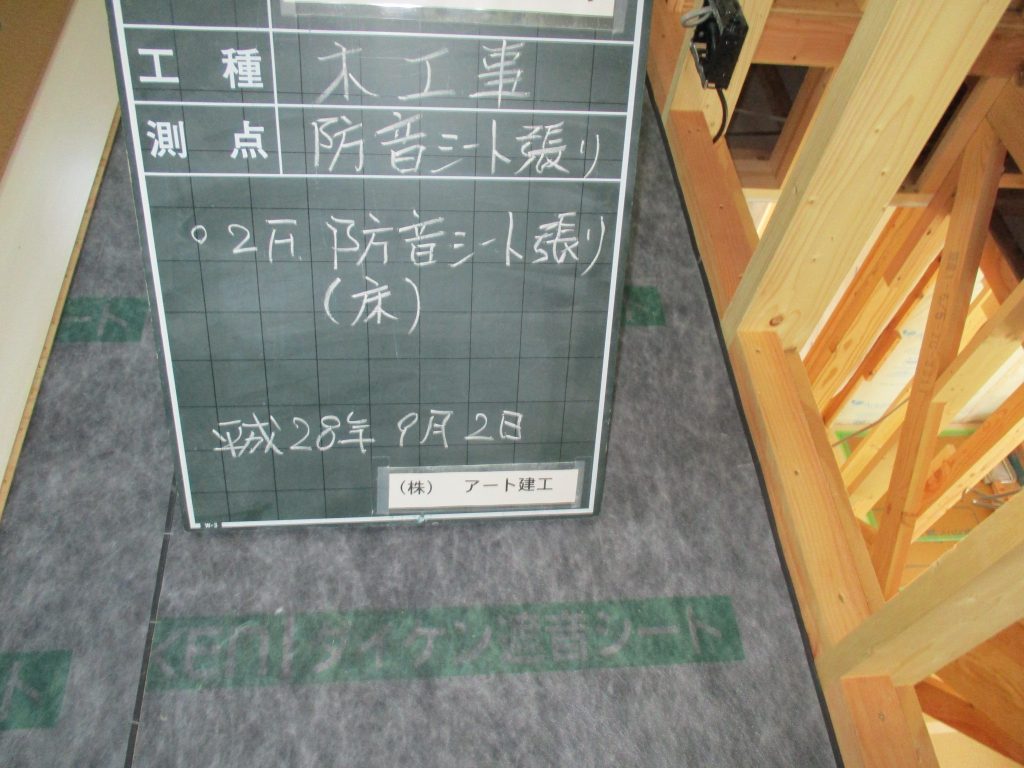 工種 木工事
測点 防音シート張り
○2F. 防音シート張り
(床)
平成28年 9月2日
(株) アート建工
ダイケン遮音シート
ート